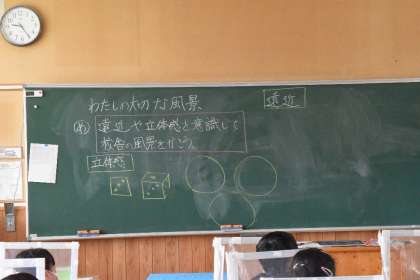 わたしの大切な風景
遠近
め 遠近や立体感を意識して
校舎の風景をかこう。
立体感